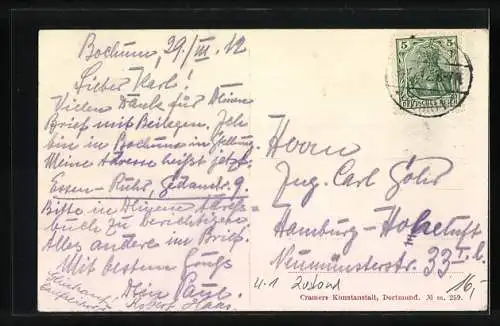 Bochum, 29./III. 12
Lieber Karl!
Vielen Dank für Deinen
Brief mit Beilagen. Ich
bin in Bochum in Stellung.
Meine Adresse heißt jetzt:
Essen-Ruhr, 9.
Bitte in Deinem
buch zu berichtigen
Alles andere im Brief.
Mit bestem Gruß
Dein
5
DEUTSCHES REICH
Herrn
Ing. Carl
Hamburg-Hoheluft
Neumünsterstr. 33 I. l.
16,-
Cramers Kunstanstalt, Dortmund. № m. 259.